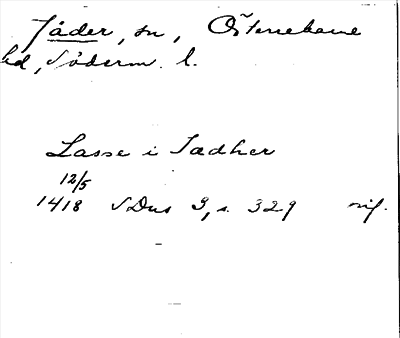 Jäder, sn, Österrekarne
hd, Söderm. l.
Lasse i Jadher
12/5
1418 SDns 3, s. 329 nif.